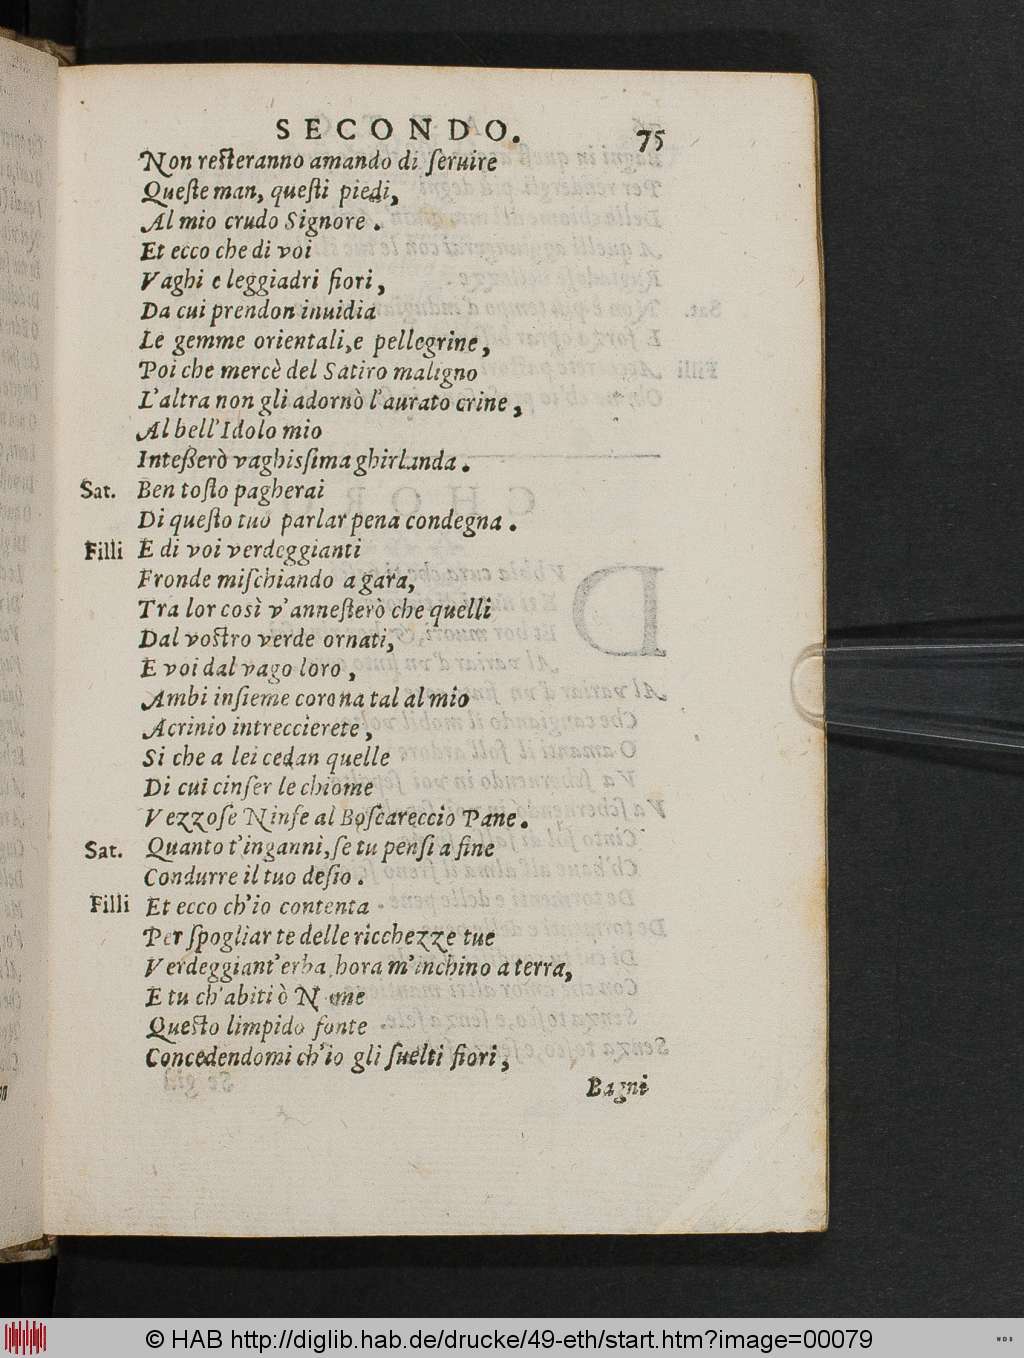 SECONDO. 75
Non resteranno amando di ſeruire
Queſte man, queſti piedi,
Al mio crudo Signore.
Et ecco che di voi
Vaghi e leggiadri fiori,
Da cui prendon inuidia
Le gemme orientali, e pellegrine,
Poi che mercè del Satiro maligno
L'altra non gli adornò l'aurato crine,
Al bell'Idolo mio
Inteßerò vaghisſima ghirlanda.
Sat. Ben toſto pagherai
Di queſto tuo parlar pena condegna.
Filli E di voi verdeggianti
Fronde miſchiando a gara,
Tra lor così v'anneſterò che quelli
Dal vostro verde ornati,
E voi dal vago loro,
Ambi inſieme corona tal al mio
Acrinio intreccierete,
Si che a lei cedan quelle
Di cui cinſer le chiome
Vezzoſe Ninfe al Boſcareccio Pane.
Sat. Quanto t'inganni, ſe tu penſi a fine
Condurre il tuo deſio.
Filli Et ecco ch'io contenta
Per ſpogliar te delle ricchezze tue
Verdeggiant'erba, hora m'inchino a terra,
E tu ch'abiti ò Nume
Questo limpido fonte
Concedendomi ch'io gli ſuelti fiori,
Bagni
© HAB http://diglib.hab.de/drucke/49-eth/start.htm?image=00079